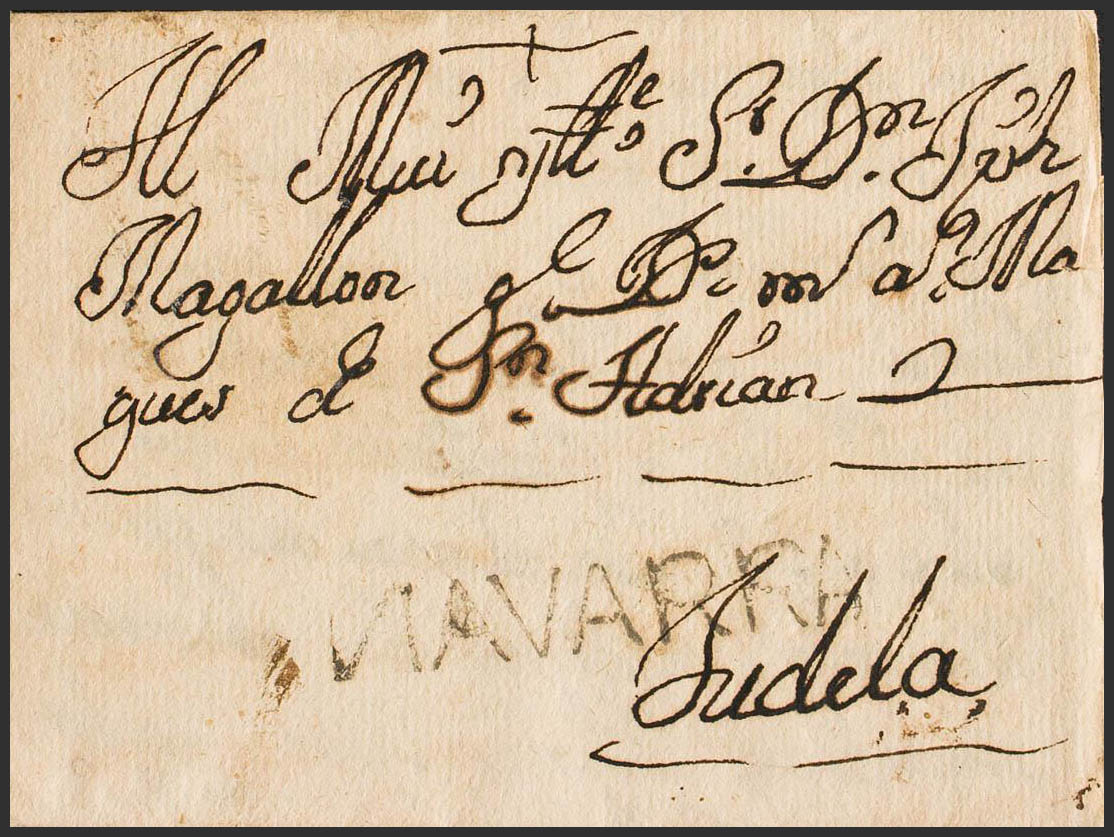 Al Mui Ylle Sr. Dn. Jph
Magallon gl. De ms as. Ma
gues de Sn. Adrian
NAVARRA
Tudela